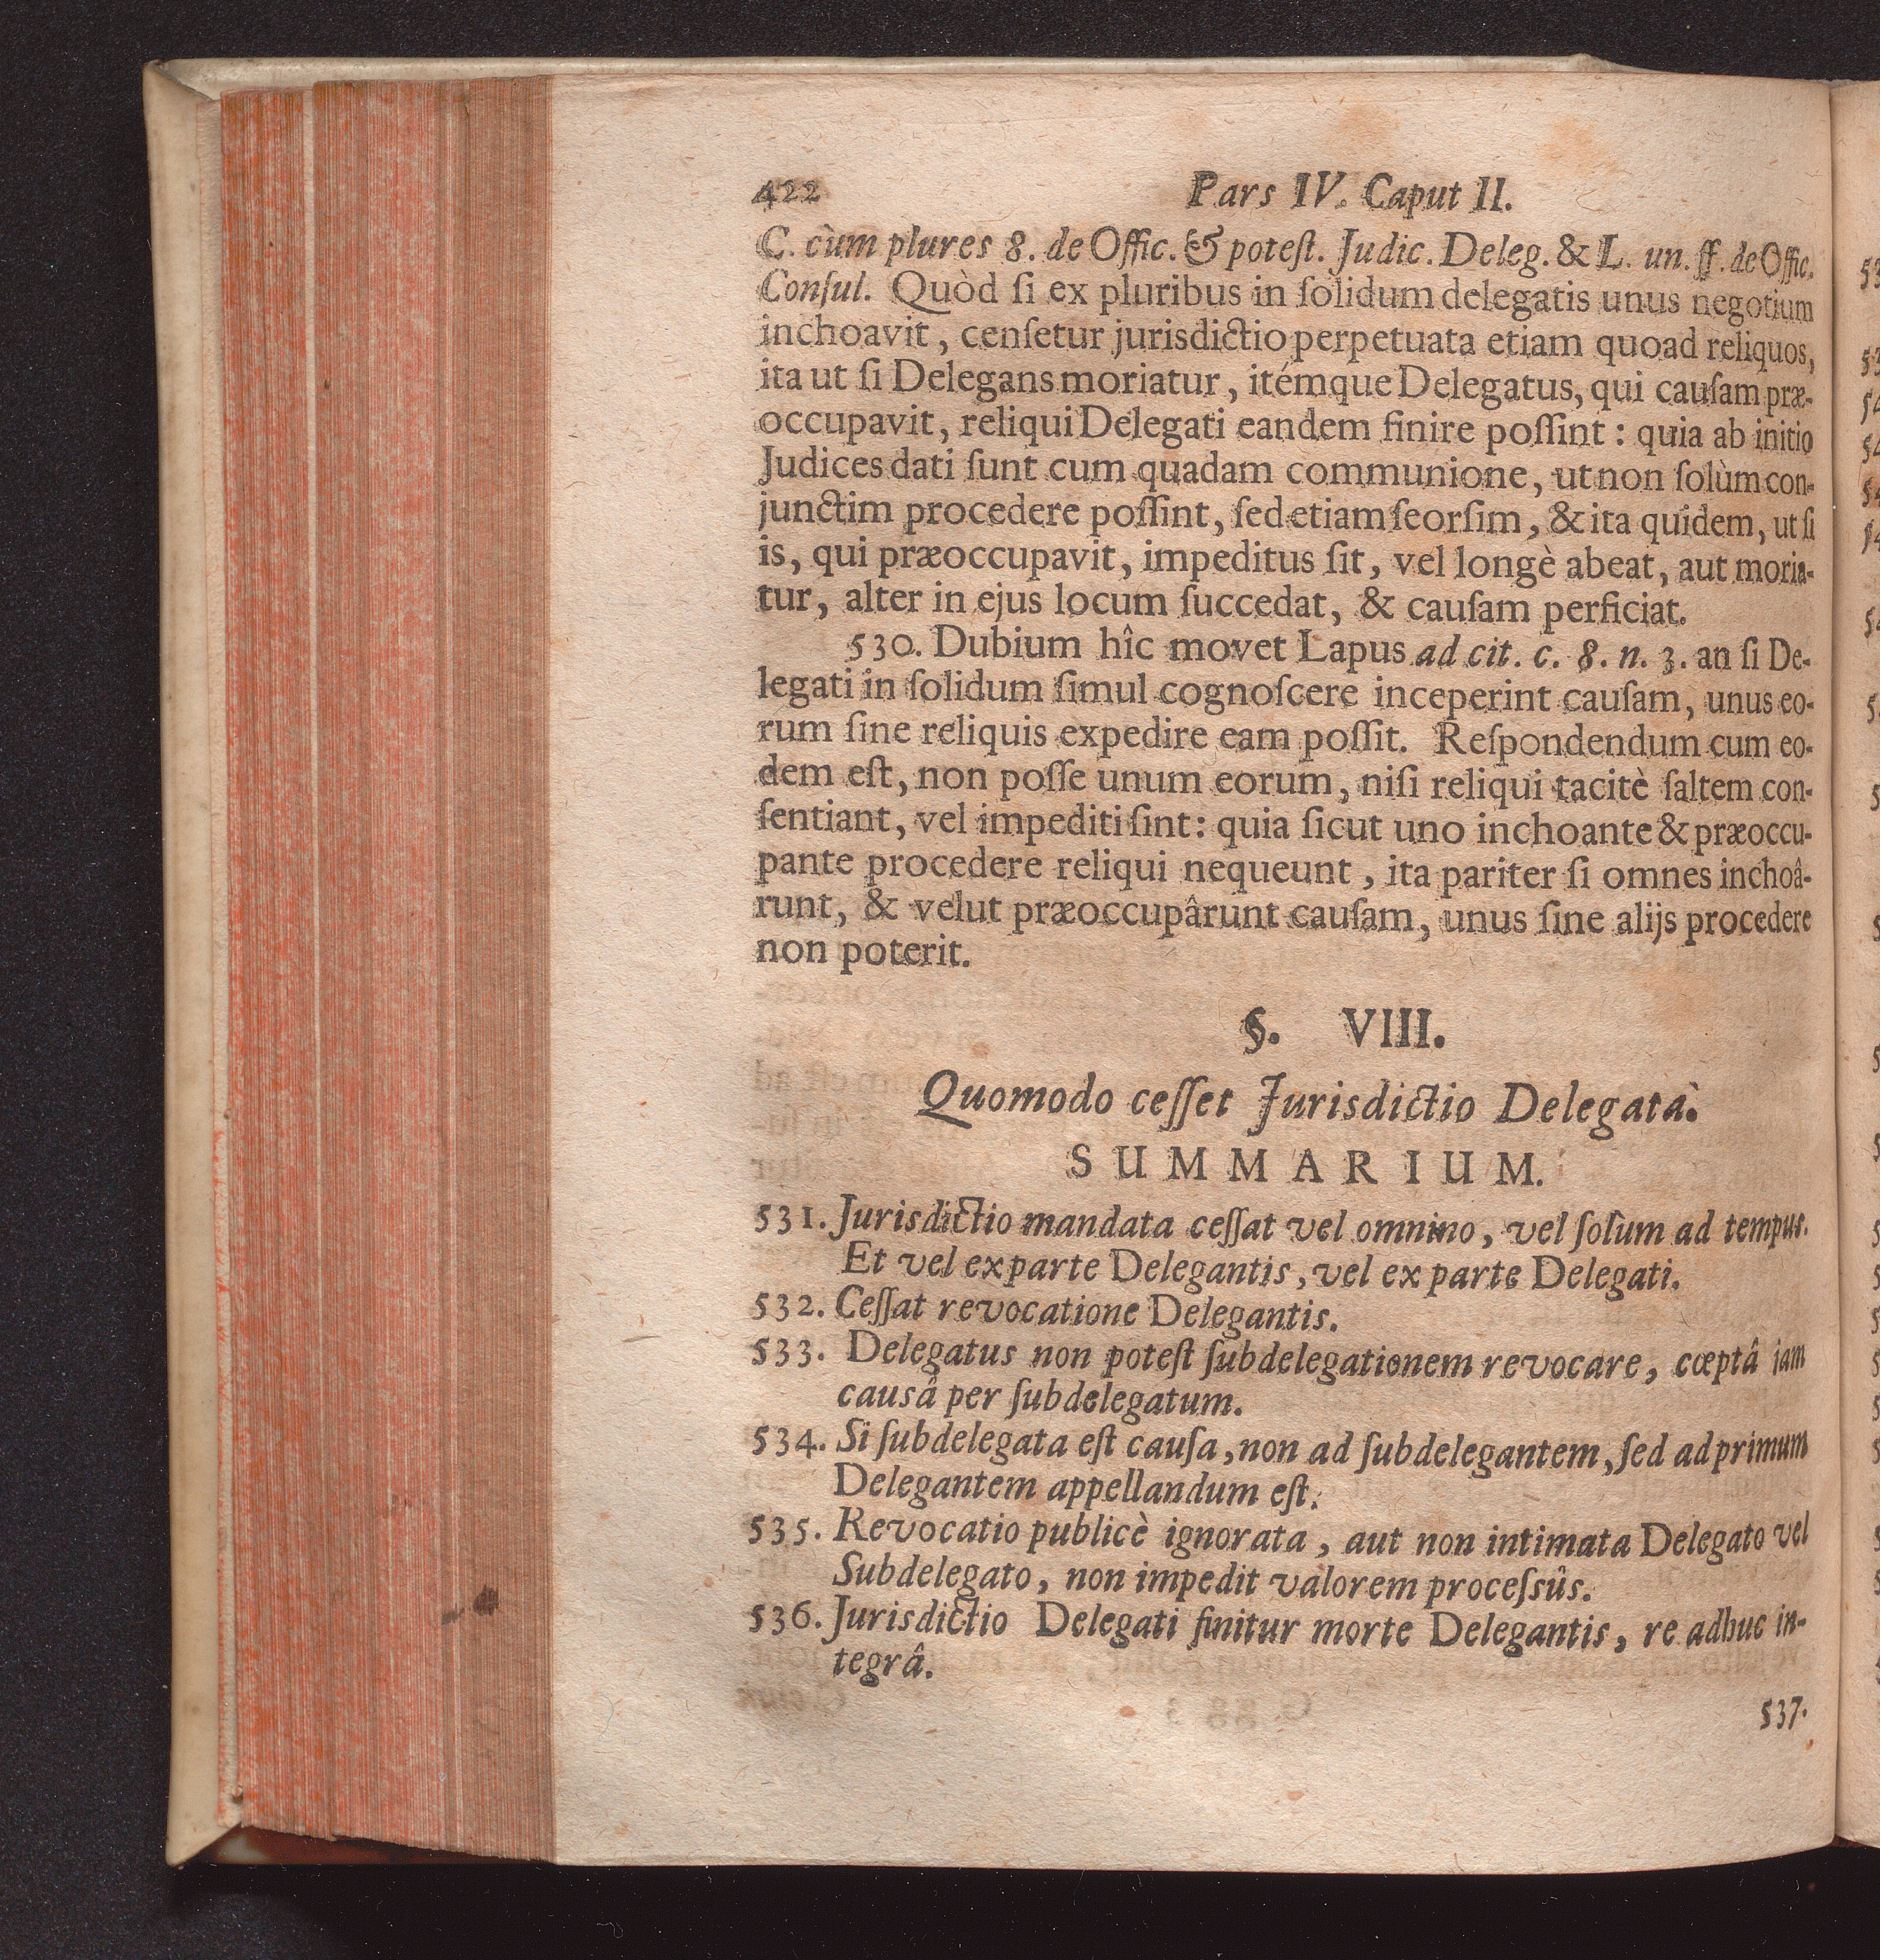 422 Pars IV. Caput II.
C. cùm plures 8. de Offic. & poteſt. Judic. Deleg. & L. un. ff. de Offic.
Conſul. Quòd ſi ex pluribus in ſolidum delegatis unus negotium
inchoavit, cenſetur jurisdictio perpetuata etiam quoad reliquos,
ita ut ſi Delegans moriatur, itémque Delegatus, qui cauſam præ-
occupavit, reliqui Delegati eandem finire poſſint: quia ab initio
Judices dati ſunt cum quadam communione, ut non ſolùm con-
junctim procedere poſſint, ſed etiam ſeorſim, & ita quidem, ut ſi
is, qui præoccupavit, impeditus ſit, vel longè abeat, aut moria-
tur, alter in ejus locum ſuccedat, & cauſam perficiat.
530. Dubium hîc movet Lapus ad cit. c. 8. n. 3. an ſi De-
legati in ſolidum ſimul cognoſcere inceperint cauſam, unus eo-
rum ſine reliquis expedire eam poſſit. Reſpondendum cum eo-
dem eſt, non poſſe unum eorum, niſi reliqui tacitè ſaltem con-
ſentiant, vel impediti ſint: quia ſicut uno inchoante & præoccu-
pante procedere reliqui nequeunt, ita pariter ſi omnes inchoâ-
runt, & velut præoccupârunt cauſam, unus ſine alijs procedere
non poterit.
§. VIII.
Quomodo ceſſet Jurisdictio Delegata.
SUMMARIUM.
531. Jurisdictio mandata ceſſat vel omnino, vel ſolùm ad tempus.
Et vel ex parte Delegantis, vel ex parte Delegati.
532. Ceſſat revocatione Delegantis.
533. Delegatus non poteſt ſubdelegationem revocare, cœptâ jam
causâ per ſubdelegatum.
534. Si ſubdelegata eſt cauſa, non ad ſubdelegantem, ſed ad primum
Delegantem appellandum eſt.
535. Revocatio publicè ignorata, aut non intimata Delegato vel
Subdelegato, non impedit valorem proceſsûs.
536. Jurisdictio Delegati finitur morte Delegantis, re adhuc in-
tegrâ.
537.